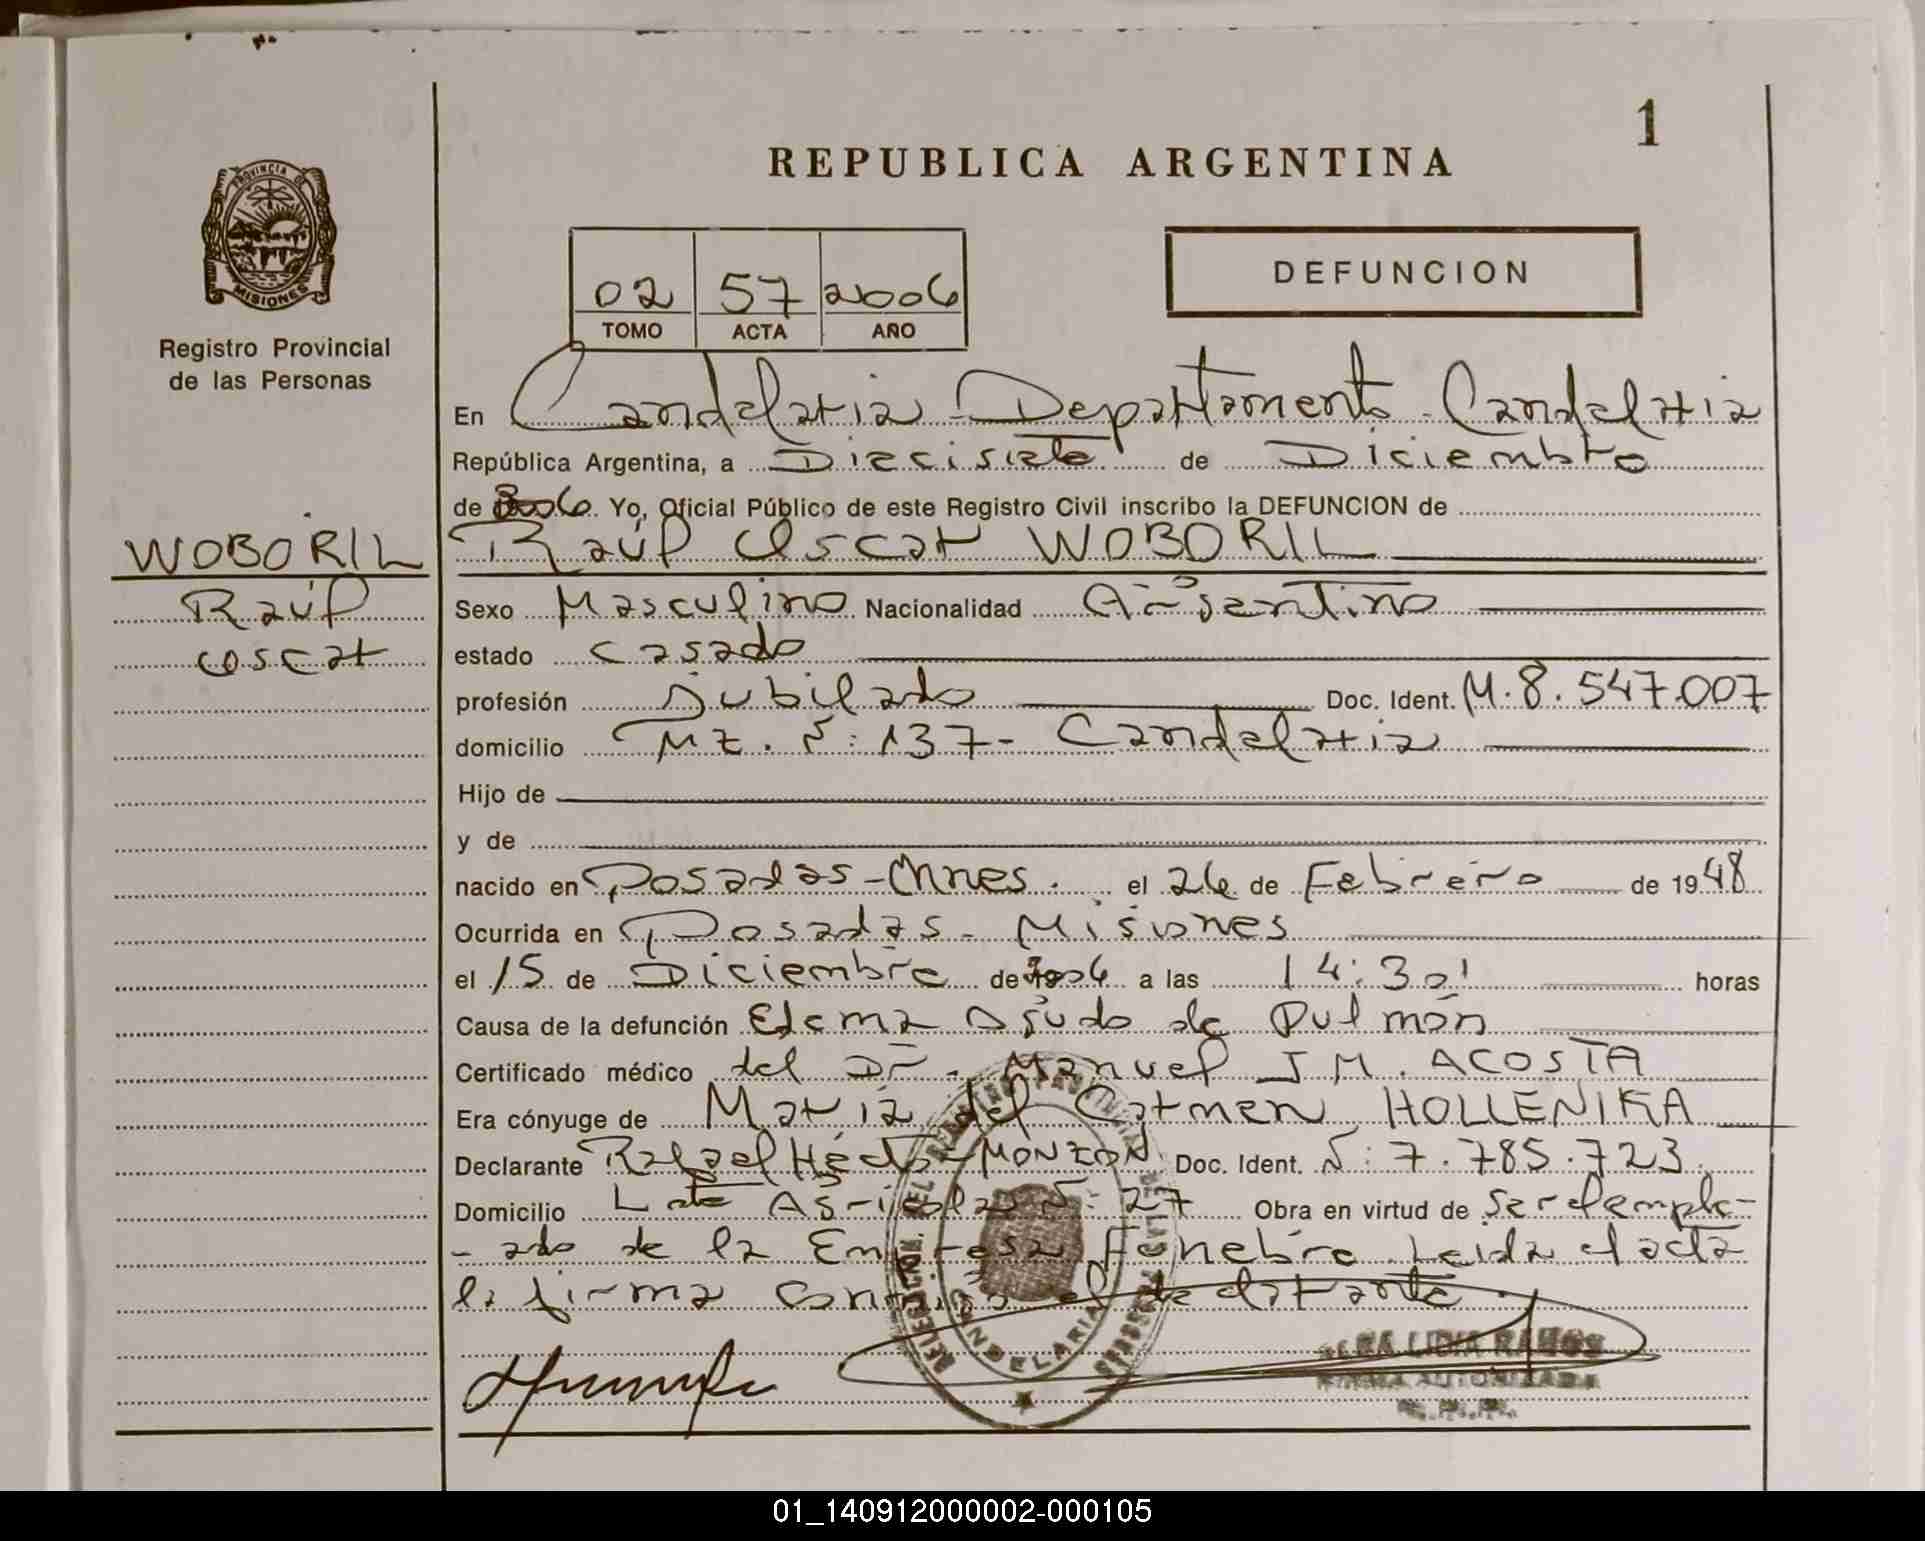 1
REPUBLICA ARGENTINA
PROVINCIA DE
MISIONES
Registro Provincial
de las Personas
DEFUNCION
02 57 2006
TOMO ACTA AÑO
En Candelaria - Departamento Candelaria
República Argentina, a Diecisiete de Diciembre
de 2006. Yo, Oficial Público de este Registro Civil inscribo la DEFUNCION de
WOBORIL
Raúl
Oscar
Raúl Oscar WOBORIL
Sexo Masculino Nacionalidad Argentino
estado casado
profesión Jubilado Doc. Ident. M. 8.547.007
domicilio Mz. Nº: 137 - Candelaria
Hijo de
y de
nacido en Posadas - Mnes. el 26 de Febrero de 1948
Ocurrida en Posadas - Misiones
el 15 de Diciembre de 2006 a las 14:30' horas
Causa de la defunción Edema Agudo de Pulmón
Certificado médico del Dr. Manuel J.M. ACOSTA
Era cónyuge de María del Carmen HOLLENIKA
Declarante Rafael Héctor MONZON Doc. Ident. Nº: 7.785.723
Domicilio Lote Agrícola Nº: 27 Obra en virtud de ser el emple-
-ado de la Empresa Fúnebre. Leida el acta
la firma conmigo el declarante.
CANDELARIA
LIDIA RAMOS
FIRMA AUTORIZADA
01_140912000002-000105